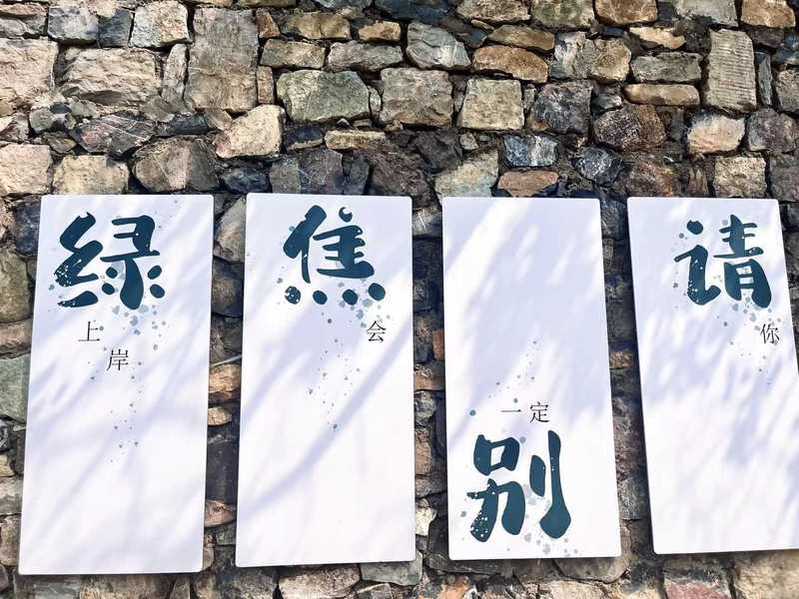 请别焦绿
你一定会上岸